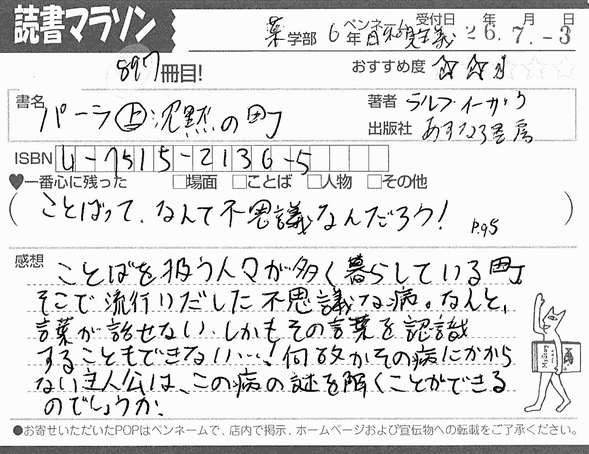 読書マラソン
薬学部 6年 ペンネーム 日和見主義 受付日 26年7.月-3日
897冊目!
おすすめ度 ☆☆
書名 パーラ㊤沈黙の町
著者 ラルフ・イーザウ
出版社 あすなろ書房
ISBN 4-7515-2136-5
♥一番心に残った □場面 □ことば □人物 □その他
(ことばって、なんて不思議なんだろう! P.95)
感想 ことばを扱う人々が多く暮らしている町
そこで流行りだした不思議な病。なんと、
言葉が話せない、しかもその言葉を認識
することもできない…!何故かその病にかから
ない主人公は、この病の謎を解くことができる
のでしょうか、
●お寄せいただいたPOPはペンネームで、店内で掲示、ホームページおよび宣伝物への転載をご了承ください。